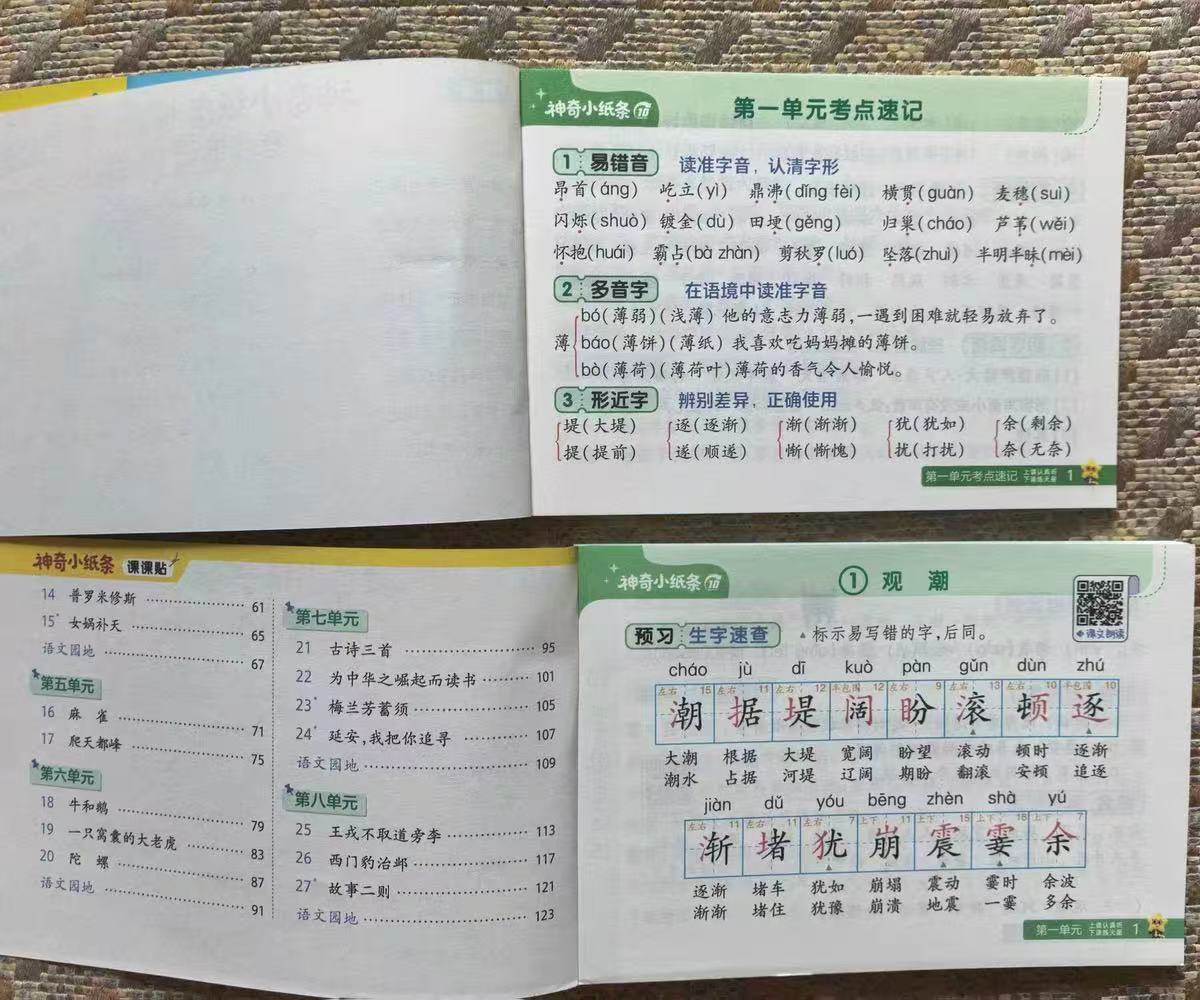 神奇小纸条
第一单元考点速记
1 易错音 读准字音，认清字形
昂首(áng) 屹立(yì) 鼎沸(dǐng fèi) 横贯(guàn) 麦穗(suì)
闪烁(shuò) 镀金(dù) 田埂(gěng) 归巢(cháo) 芦苇(wěi)
怀抱(huái) 霸占(bà zhàn) 剪秋罗(luó) 坠落(zhuì) 半明半昧(mèi)
2 多音字 在语境中读准字音
薄
bó(薄弱)(浅薄)他的意志力薄弱,一遇到困难就轻易放弃了。
báo(薄饼)(薄纸)我喜欢吃妈妈摊的薄饼。
bò(薄荷)(薄荷叶)薄荷的香气令人愉悦。
3 形近字 辨别差异，正确使用
堤(大堤) 逐(逐渐) 渐(渐渐) 犹(犹如) 余(剩余)
提(提前) 遂(顺遂) 惭(惭愧) 扰(打扰) 奈(无奈)
第一单元考点速记 上课认真听 下课练天量 1
神奇小纸条 课课贴
14 普罗米修斯 61
15* 女娲补天 65
语文园地 67
第五单元
16 麻雀 71
17 爬天都峰 75
第六单元
18 牛和鹅 79
19 一只窝囊的大老虎 83
20 陀螺 87
语文园地 91
第七单元
21 古诗三首 95
22 为中华之崛起而读书 101
23* 梅兰芳蓄须 105
24* 延安,我把你追寻 107
语文园地 109
第八单元
25 王戎不取道旁李 113
26 西门豹治邺 117
27* 故事二则 121
语文园地 123
神奇小纸条
1 观潮
课文朗读
预习 生字速查 ▲标示易写错的字,后同。
cháo jù dī kuò pàn gǔn dùn zhú
左右 15 左右 11 左右 12 半包围 12 左右 9 左右 13 左右 10 半包围 10
潮 据 堤 阔 盼 滚 顿 逐
大潮 根据 大堤 宽阔 盼望 滚动 顿时 逐渐
潮水 占据 河堤 辽阔 期盼 翻滚 安顿 追逐
jiàn dǔ yóu bēng zhèn shà yú
左右 11 左右 11 左右 7 上下 11 上下 15 上下 16 上下 7
渐 堵 犹 崩 震 霎 余
逐渐 堵车 犹如 崩塌 震动 霎时 余波
渐渐 堵住 犹豫 崩溃 地震 一霎 多余
第一单元 上课认真听 下课练天量 1